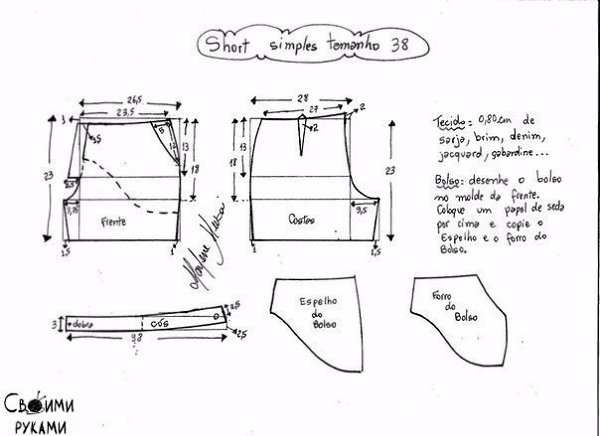 Short simples tamanho 38
26,5
23,5
1
8
1,5
12
13
18
23
3,5
3,75
Frente
1,5
1
28
27
2
2
13
18
23
9,5
Costas
1
1,5
Tecido: 0,80cm de
sarja, brim, denim,
jacquard, gabardine...
Bolso: desenhe o bolso
no molde da frente.
Coloque um papel de seda
por cima e copie o
Espelho e o forro do
Bolso.
Marlene Mukai
3
dobra
CÓS
2,5
2,5
Espelho
do
Bolso
Forro
do
Bolso
Своими
руками